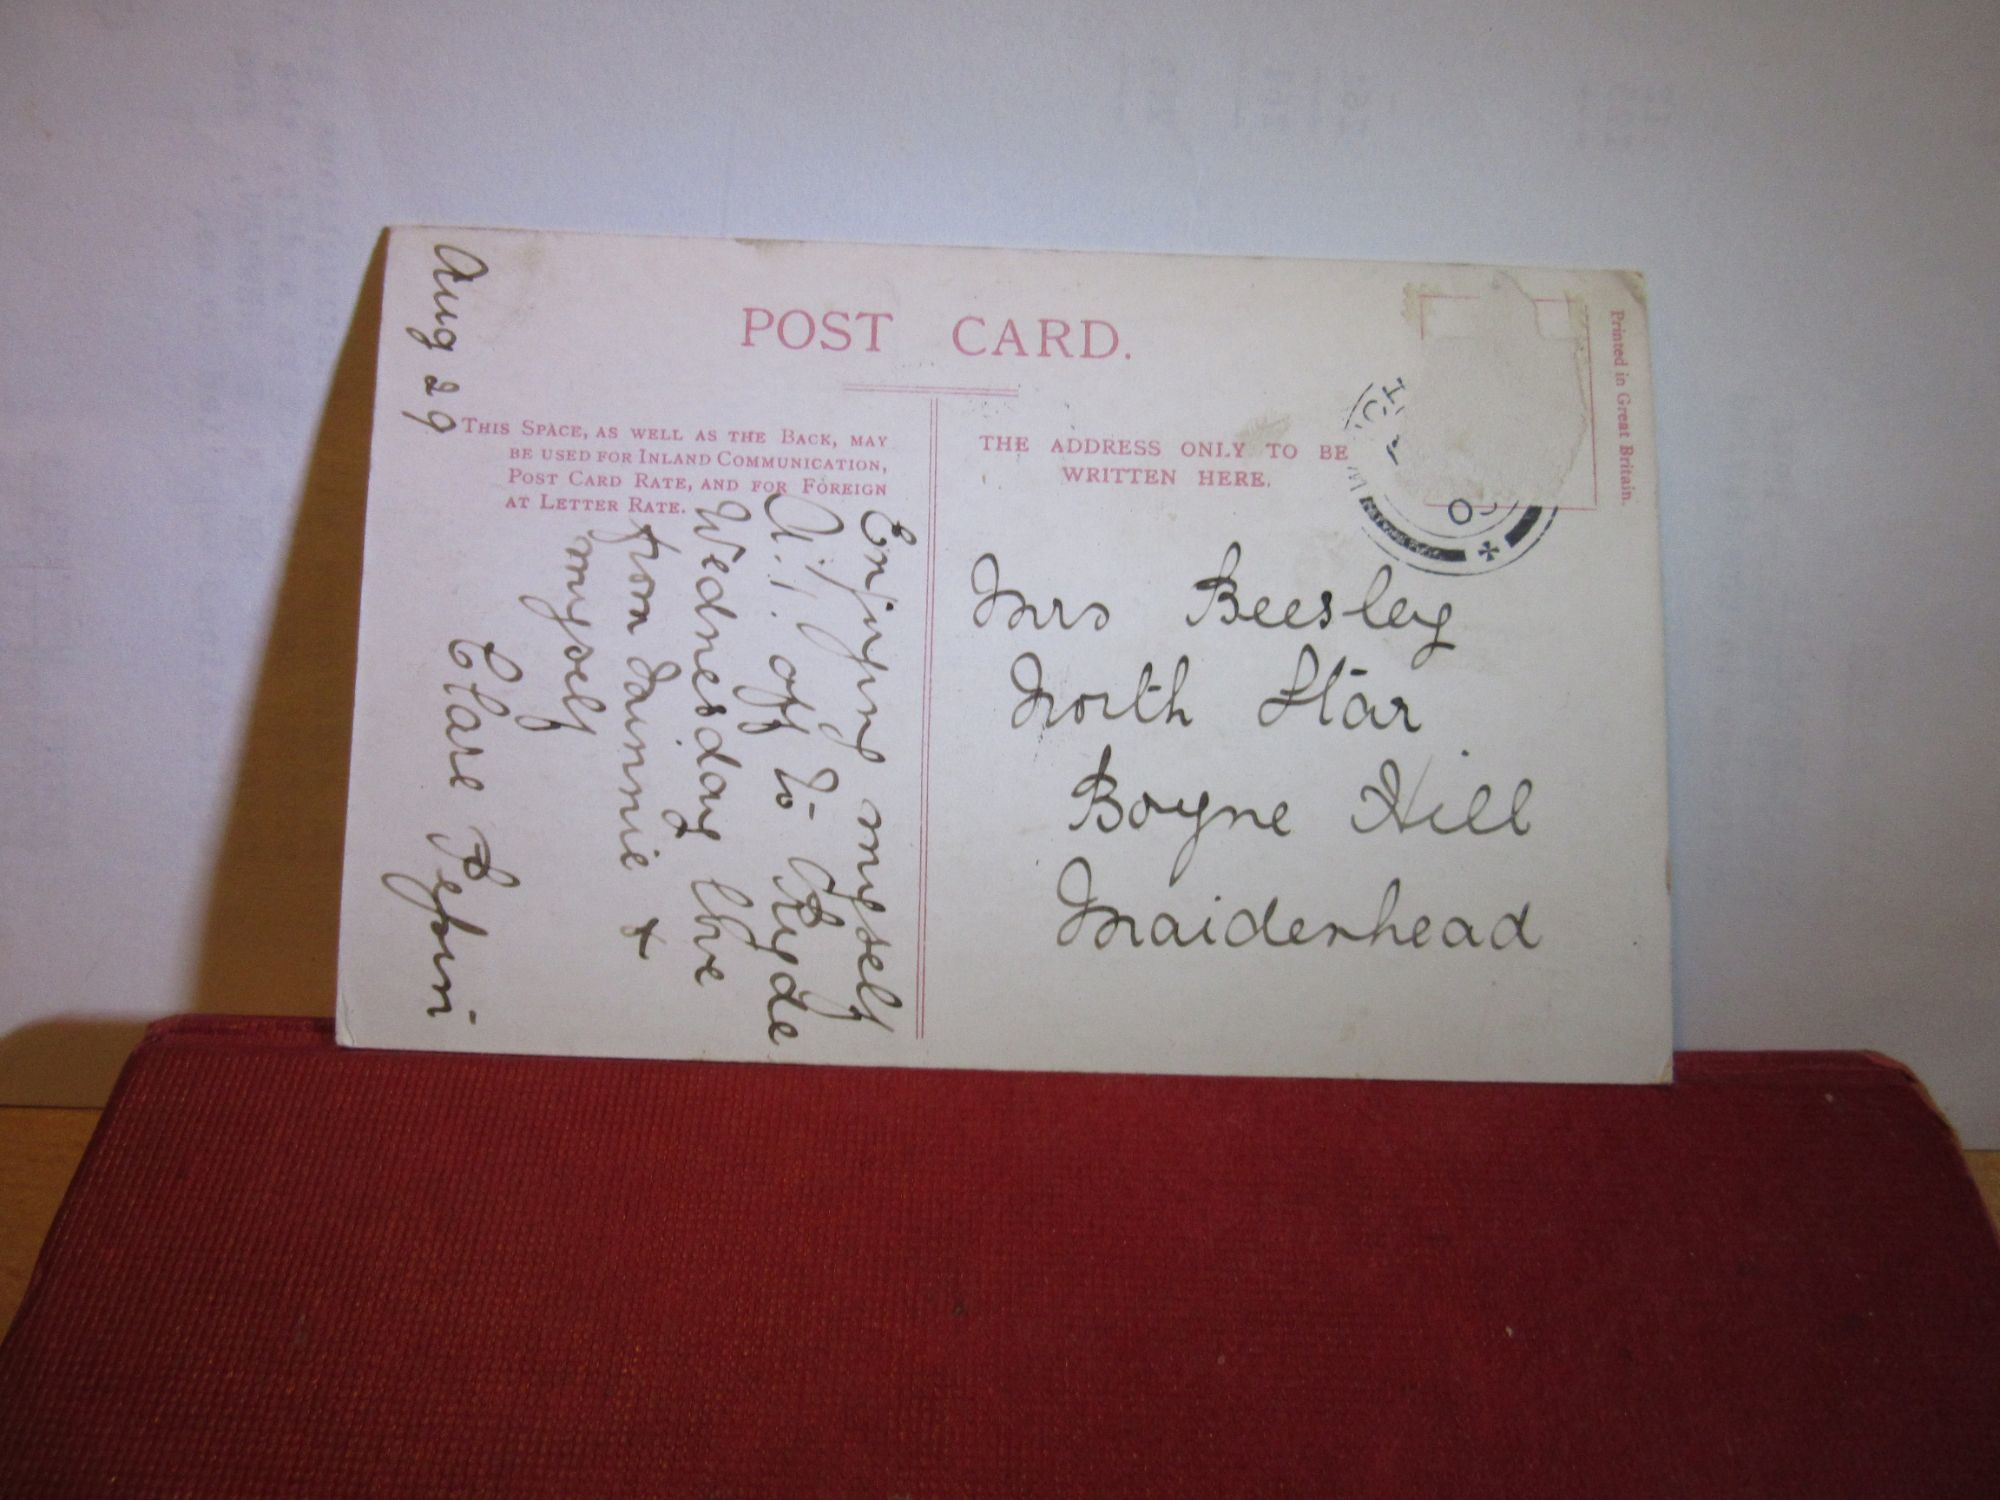 POST CARD.
Printed in Great Britain.
THIS SPACE, AS WELL AS THE BACK, MAY
BE USED FOR INLAND COMMUNICATION,
POST CARD RATE, AND FOR FOREIGN
AT LETTER RATE.
THE ADDRESS ONLY TO BE
WRITTEN HERE.
Aug 29
Enjoying myself
off to Ryde
Wednesday love
from &
myself
Clare
Mrs Beesley
North Star
Boyne Hill
Maidenhead